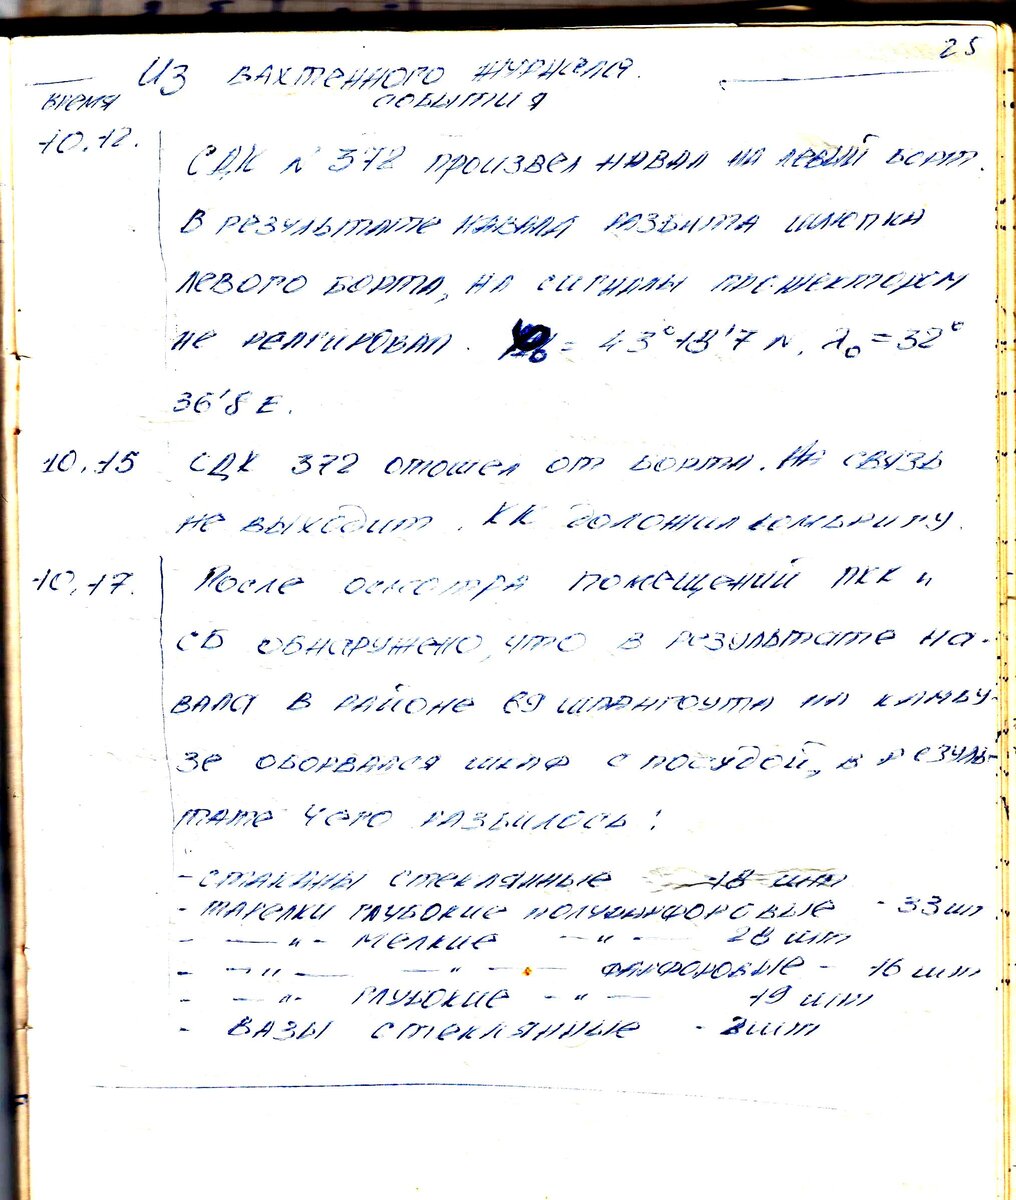 25
Из вахтенного журнала.
время события
10.12. СДК N 372 произвел навал на левый борт.
В результате навала разбита шлюпка
левого борта, на сигналы прожектором
не реагировал. = 43°18'7 N, λo = 32°
36'8 E.
10.15 СДК 372 отошел от борта. На связь
не выходит. КК доложил комбригу.
10.17. После осмотра помещений ПКК и
СБ обнаружено, что в результате на-
вала в районе 69 шпангоута на камбу-
зе оборвался шкаф с посудой, в резуль-
тате чего разбилось:
- стаканы стеклянные 18 шт
- тарелки глубокие полуфарфоровые - 33 шт
- —"- мелкие —"— 28 шт
- —"— —"— фарфоровые - 16 шт
- —"- глубокие -"— 19 шт
- вазы стеклянные - 2 шт